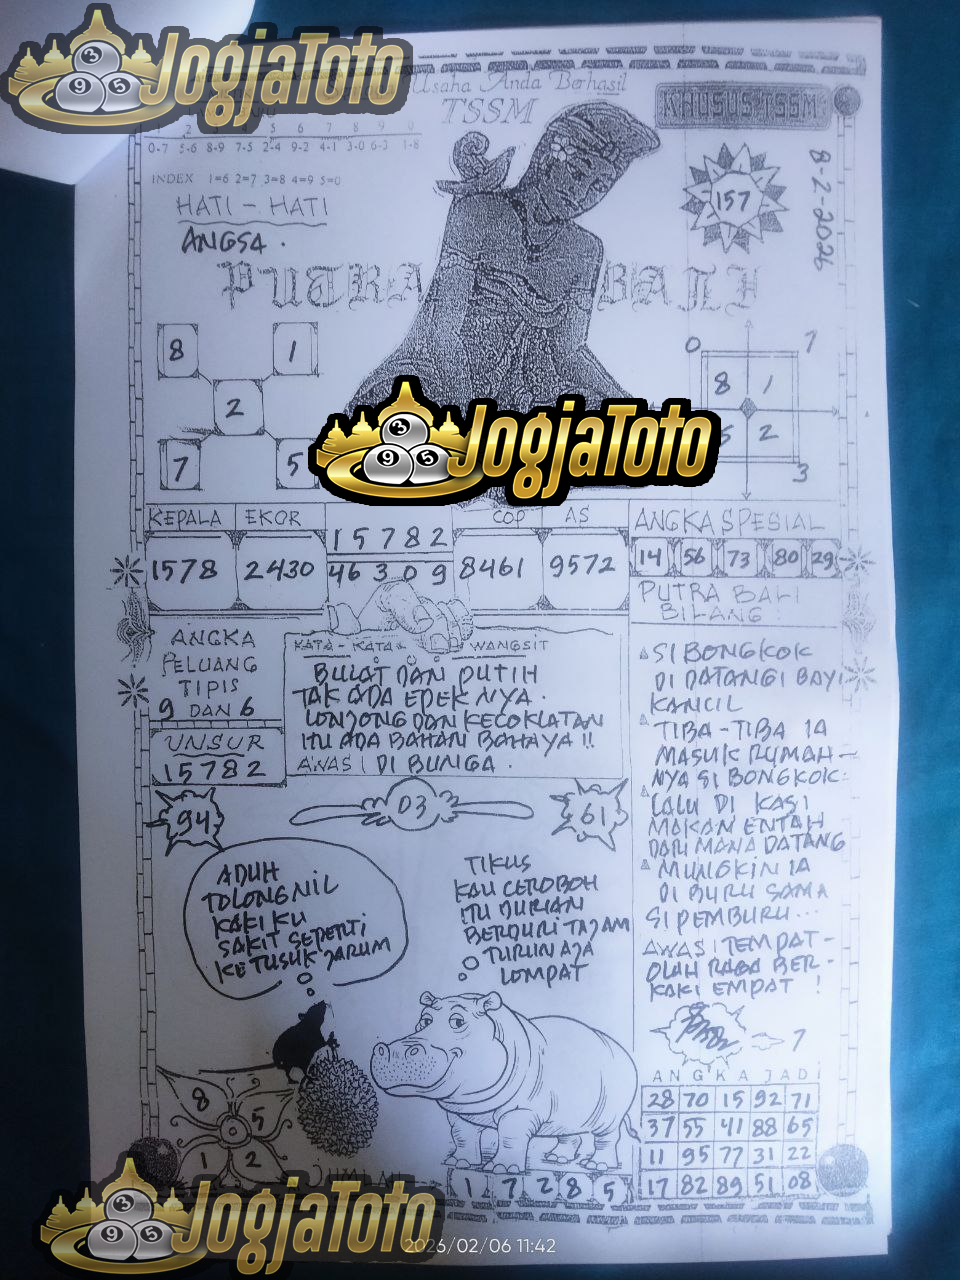 JogjaToto
Usaha Anda Berhasil
TSSM
KHUSUS TSSM
1 2 3 4 5 6 7 8 9 0
0-7 5-6 8-9 7-5 2-4 9-2 4-1 3-0 6-3 1-8
INDEX 1=6 2=7 3=8 4=9 5=0
157
8-2-2026
HATI - HATI
ANGSA.
PUTRA BALI
8 1
2
7 5
0 7
8 1
5 2
3
JogjaToto
KEPALA EKOR 15782 COP AS
1578 2430 46309 8461 9572
ANGKA SPESIAL
14 56 73 80 29
PUTRA BALI
BILANG :
ANGKA
PELUANG
TIPIS
9 DAN 6
UNSUR
15782
KATA - KATA WANGSIT
BULAT DAN PUTIH
TAK ADA EPEK NYA.
LONJONG DAN KECOKLATAN
ITU ADA BAHAN BAHAYA !!
AWAS DI BUNGA.
SI BONGKOK
DI DATANGI BAYI
KANCIL
TIBA-TIBA IA
MASUK RUMAH-
NYA SI BONGKOK.
LALU DI KASI
MAKAN ENTAH
DARI MANA DATANG
MUNGKIN IA
DI BURU SAMA
SI PEMBURU...
AWAS! TEMPAT-
OLAH RAGA BER-
KAKI EMPAT !
94
03
61
ADUH
TOLONG NIL
KAKI KU
SAKIT SEPERTI
KETUSUK JARUM
TIKUS
KAU CEROBOH
ITU DURIAN
BERDURI TAJAM
TURUN AJA
LOMPAT
7
ANGKA JADI
28 70 15 92 71
37 55 41 88 65
11 95 77 31 22
17 82 89 51 08
8 5
1 2
JUMLAH
1 7 2 8 5
JogjaToto
2026/02/06 11:42